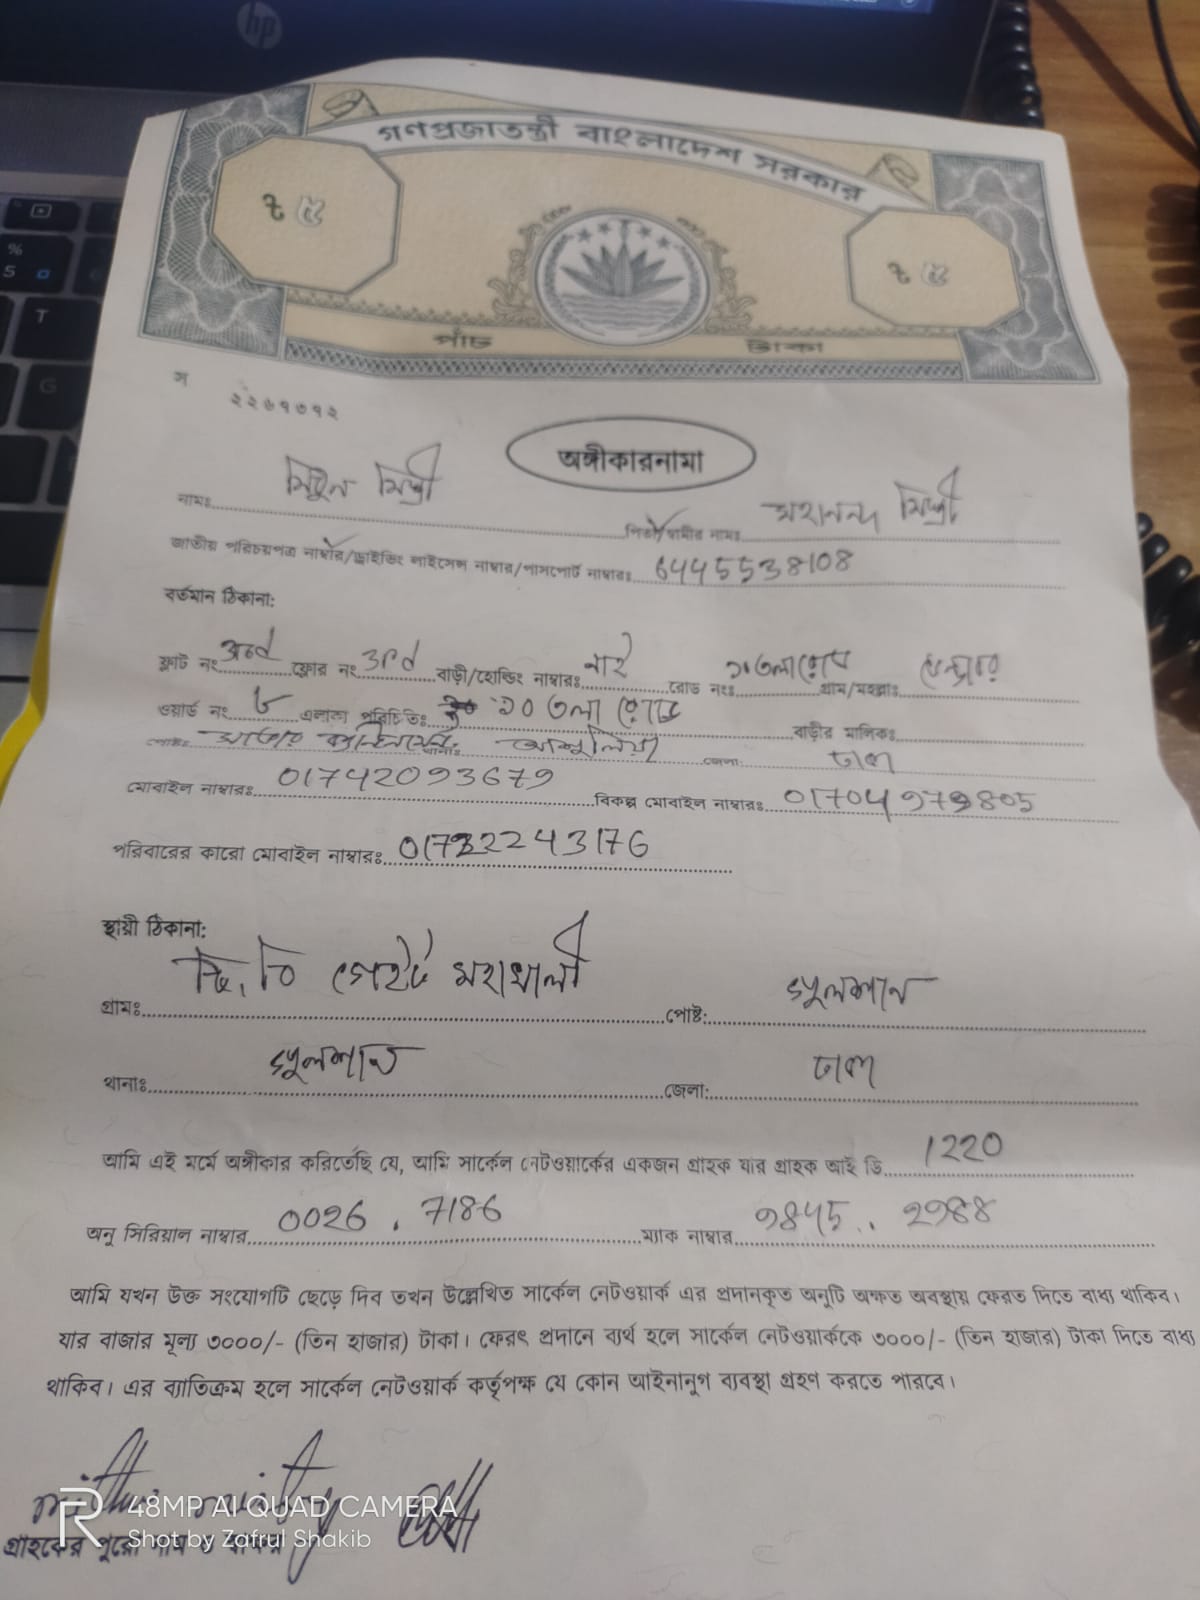 hp
গণপ্রজাতন্ত্রী বাংলাদেশ সরকার
৳ ৫ ৳ ৫
পাঁচ টাকা
স ২২৬৭৩৭২
অঙ্গীকারনামা
নামঃ মিঠুন মিস্ত্রী পিতা/স্বামীর নামঃ মহানন্দ মিস্ত্রী
জাতীয় পরিচয়পত্র নাম্বার/ড্রাইভিং লাইসেন্স নাম্বার/পাসপোর্ট নাম্বারঃ 6445538108
বর্তমান ঠিকানা:
ফ্লাট নং 3rd ফ্লোর নং 3rd বাড়ী/হোল্ডিং নাম্বারঃ নাই রোড নংঃ ১০তলারোড গ্রাম/মহল্লাঃ
ওয়ার্ড নং ৮ এলাকা পরিচিতিঃ ১০ তলা রোড বাড়ীর মালিকঃ
পোষ্টঃ থানাঃ আশুলিয়া জেলা: ঢাকা
মোবাইল নাম্বারঃ 01742093679 বিকল্প মোবাইল নাম্বারঃ 01704979805
পরিবারের কারো মোবাইল নাম্বারঃ
স্থায়ী ঠিকানা:
গ্রামঃ টি, বি গেইট মহাখালী পোষ্ট: গুলশান
থানাঃ গুলশান জেলা: ঢাকা
আমি এই মর্মে অঙ্গীকার করিতেছি যে, আমি সার্কেল নেটওয়ার্কের একজন গ্রাহক যার গ্রাহক আই ডি 1220
অনু সিরিয়াল নাম্বার 0026 . 7186 ম্যাক নাম্বার 9845 .. 2988
আমি যখন উক্ত সংযোগটি ছেড়ে দিব তখন উল্লেখিত সার্কেল নেটওয়ার্ক এর প্রদানকৃত অনুটি অক্ষত অবস্থায় ফেরত দিতে বাধ্য থাকিব।
যার বাজার মূল্য ৩০০০/- (তিন হাজার) টাকা। ফেরৎ প্রদানে ব্যর্থ হলে সার্কেল নেটওয়ার্ককে ৩০০০/- (তিন হাজার) টাকা দিতে বাধ্য
থাকিব। এর ব্যাতিক্রম হলে সার্কেল নেটওয়ার্ক কর্তৃপক্ষ যে কোন আইনানুগ ব্যবস্থা গ্রহণ করতে পারবে।
mithun mistry
গ্রাহকের পুরো নাম ও স্বাক্ষর
48MP AI QUAD CAMERA
Shot by Zafrul Shakib